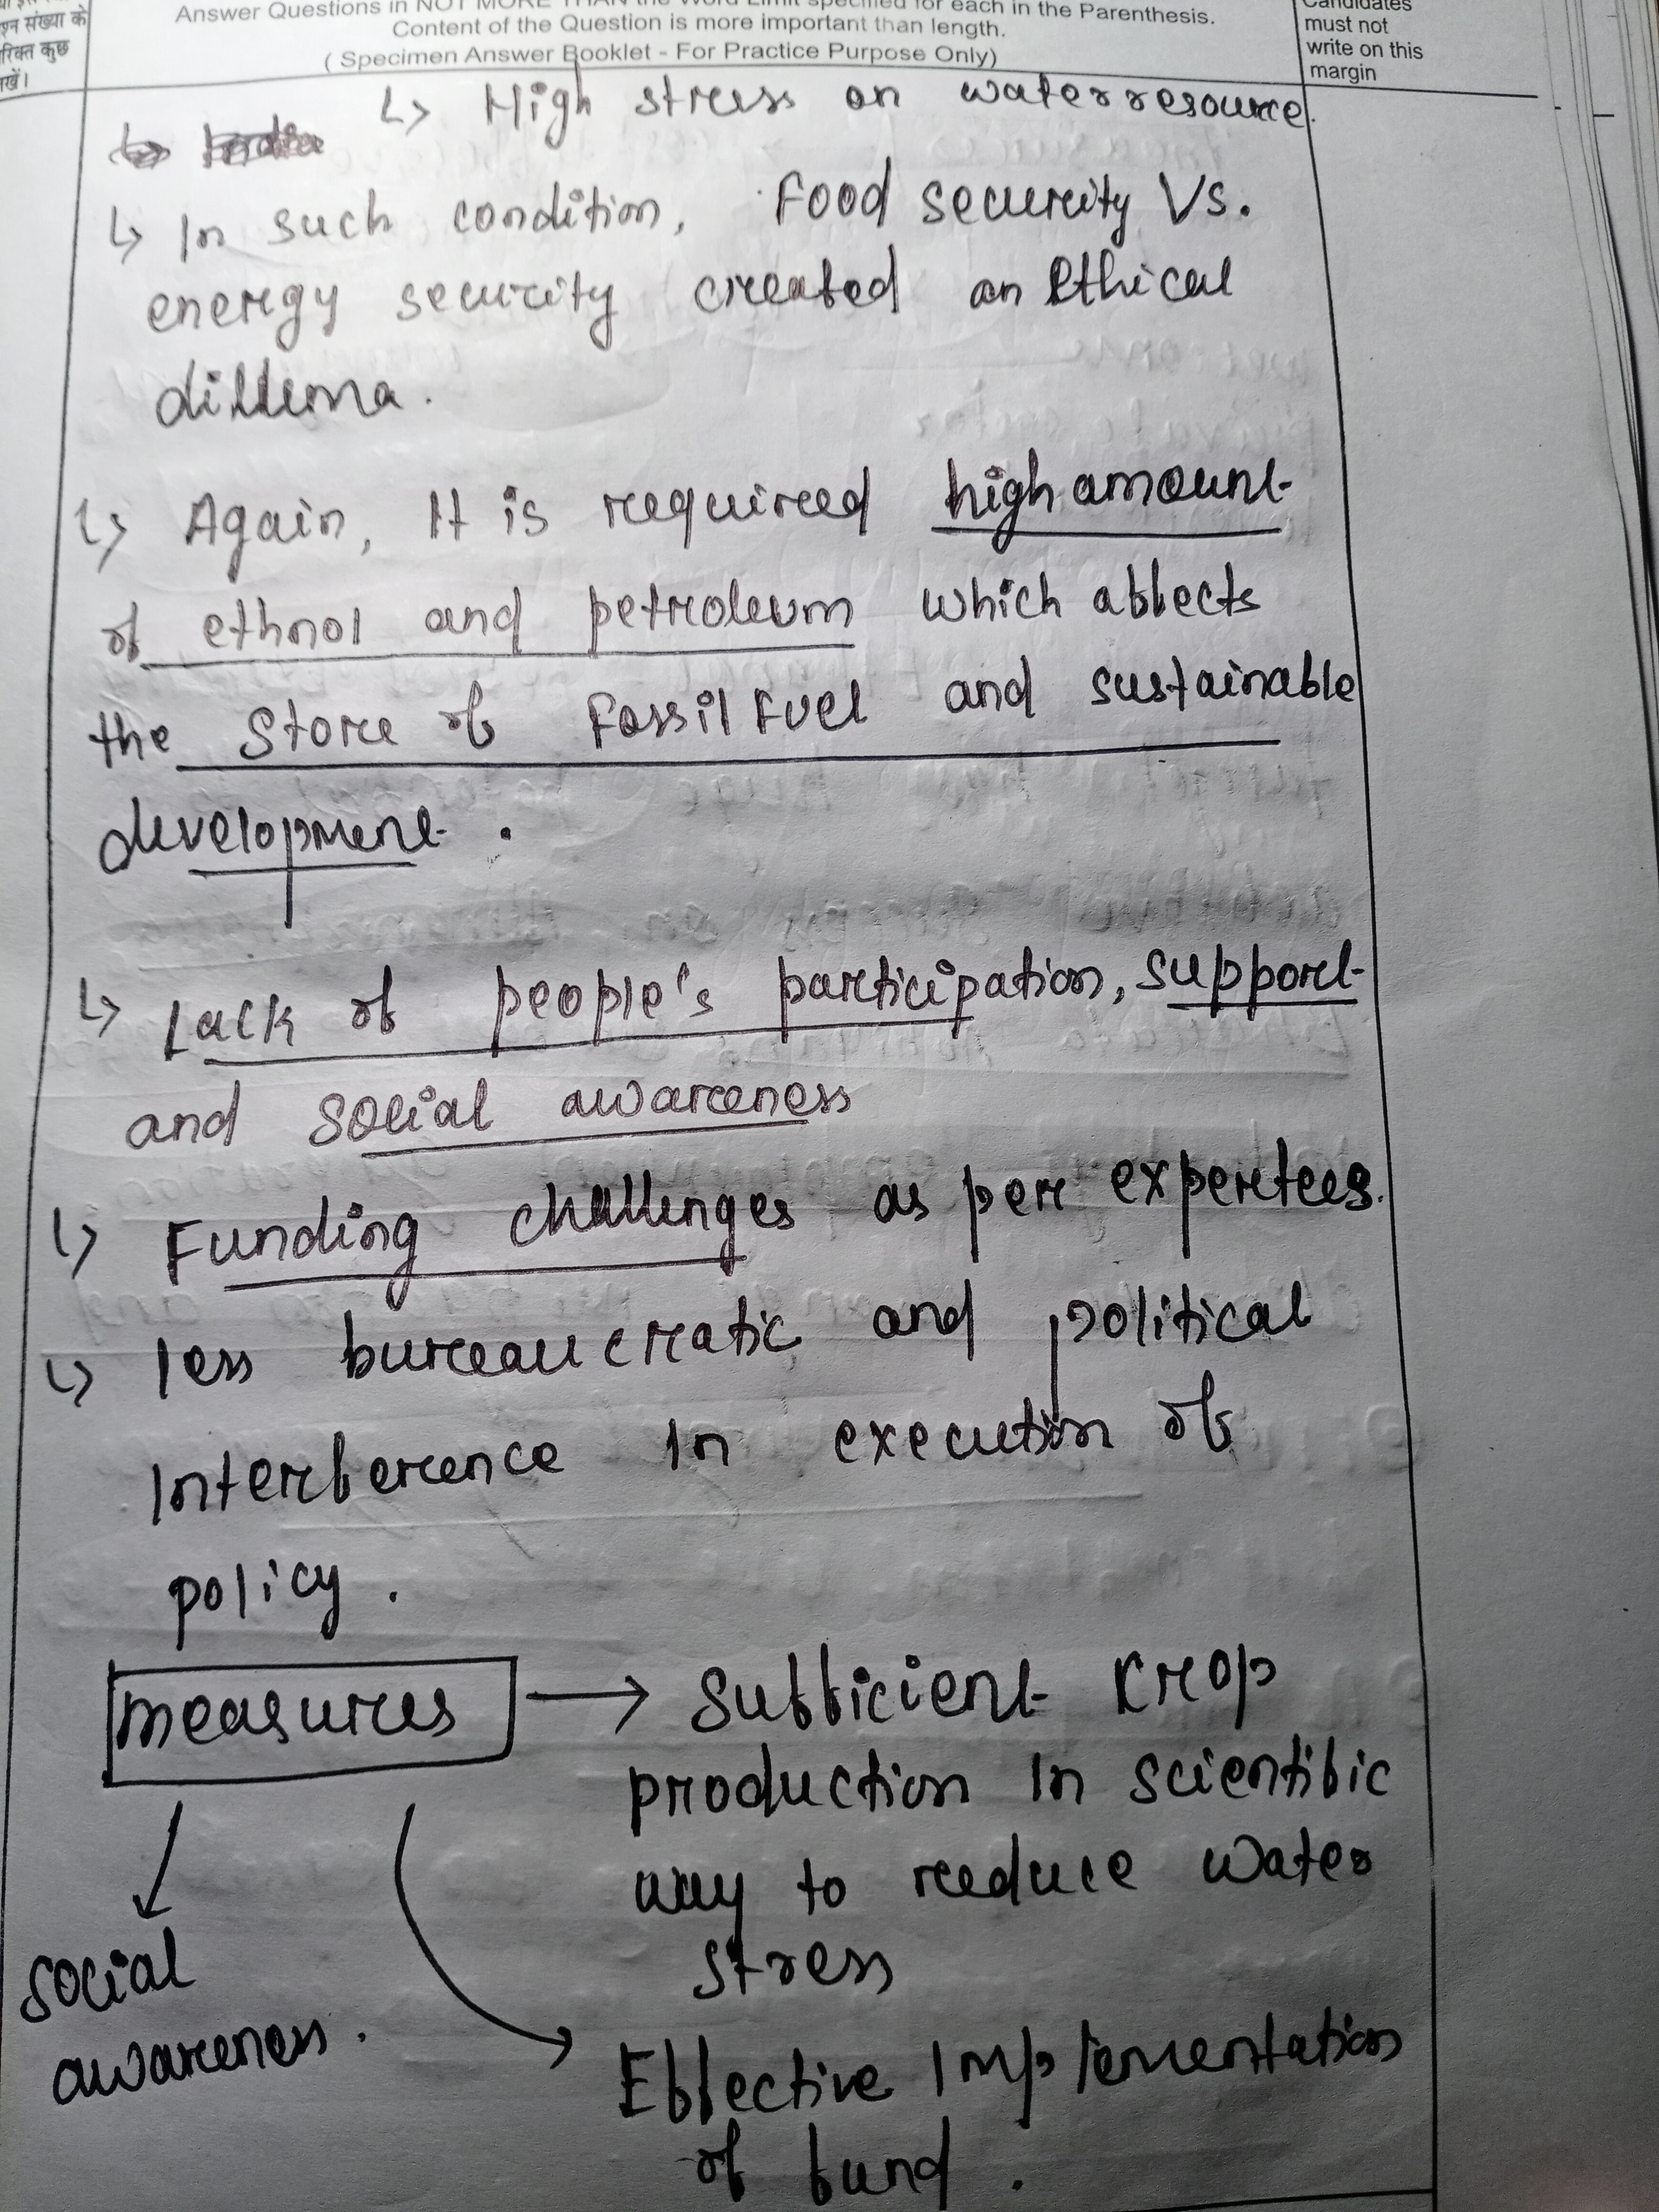 श्न संख्या के
रिक्त कुछ
खें।
Answer Questions in NOT MORE THAN the Word Limit specified for each in the Parenthesis.
Content of the Question is more important than length.
( Specimen Answer Booklet - For Practice Purpose Only)
Candidates
must not
write on this
margin
↳ High stress on water resource.
↳ In such condition, Food security Vs.
energy security created an Ethical
dillema.
↳ Again, It is required high amount
of ethnol and petroleum which affects
the Store of Fossil Fuel and sustainable
development.
↳ Lack of people's participation, support
and social awareness
↳ Funding challenges as per expertees.
↳ less bureaucratic and political
Interference In execution of
policy.
measures → Sufficient Krop
production In scientific
way to reduce water
stress
social
awareness.
Effective Implementation
of fund.